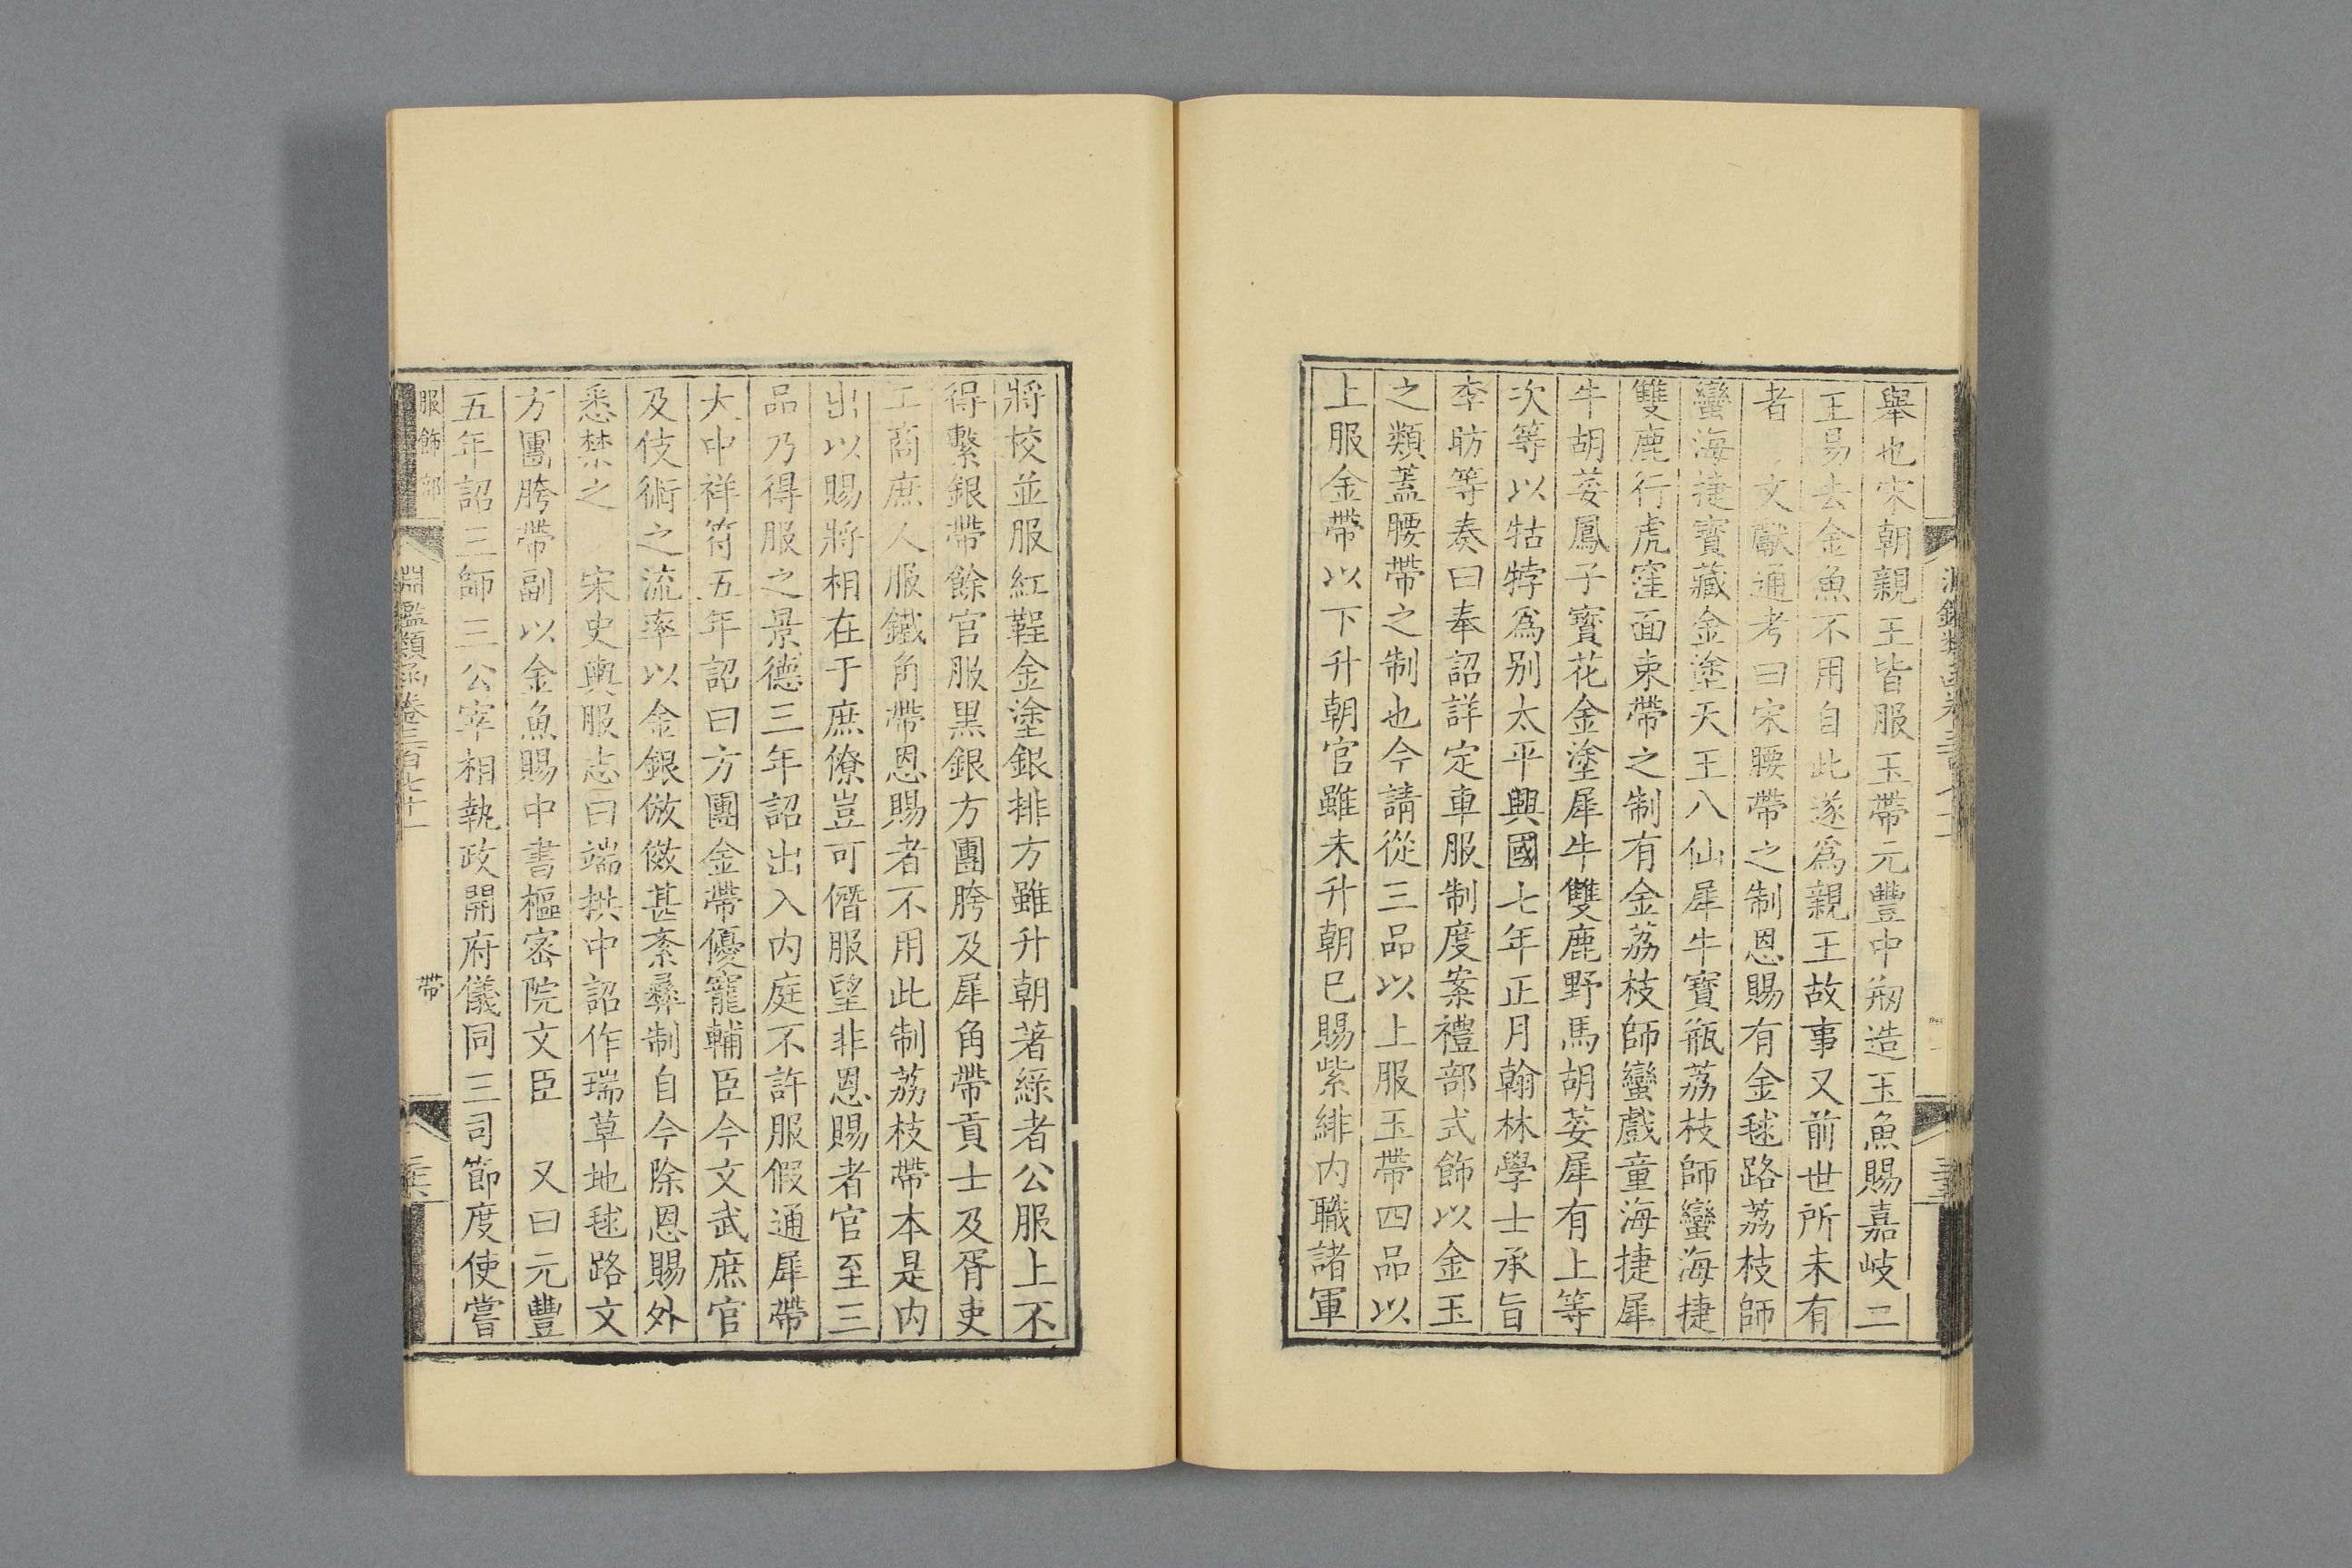 舉也宋朝親王皆服玉帶元豐中剏造玉魚賜嘉岐二
王易去金魚不用自此遂爲親王故事又前世所未有
者　文獻通考曰宋腰帶之制恩賜有金毬路荔枝師
蠻海捷寳藏金塗天王八仙犀牛寳瓶荔枝師蠻海捷
雙鹿行虎窪面束帶之制有金荔枝師蠻戲童海捷犀
牛胡荽鳳子寳花金塗犀牛雙鹿野馬胡荽犀有上等
次等以牯牸爲别太平興國七年正月翰林學士承旨
李昉等奏曰奉詔詳定車服制度案禮部式飾以金玉
之類蓋腰帶之制也今請從三品以上服玉帶四品以
上服金帶以下升朝官雖未升朝已賜紫緋内職諸軍
將校並服紅鞓金塗銀排方雖升朝著綠者公服上不
得繫銀帶餘官服黒銀方團胯及犀角帶貢士及胥吏
工商庶人服鐵角帶恩賜者不用此制荔枝帶本是内
出以賜將相在于庶僚豈可僭服望非恩賜者官至三
品乃得服之景德三年詔出入内庭不許服假通犀帶
大中祥符五年詔曰方團金帶優寵輔臣今文武庶官
及伎術之流率以金銀倣傚甚紊彝制自今除恩賜外
悉禁之　宋史輿服志曰端拱中詔作瑞草地毬路文
方團胯帶副以金魚賜中書樞密院文臣　又曰元豐
五年詔三師三公宰相執政開府儀同三司節度使嘗
服飾部
淵鑑類函卷三百七十一
帶